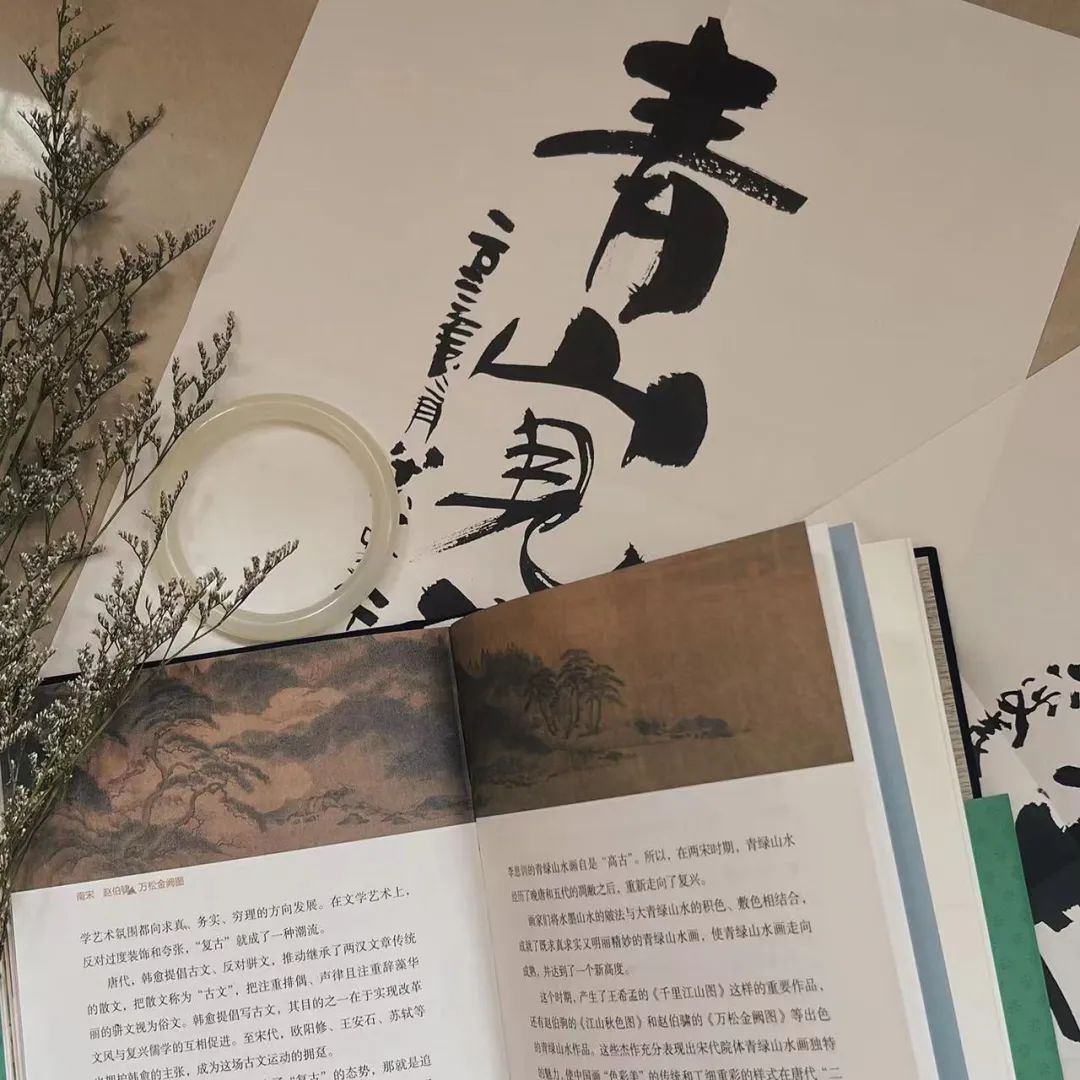 青
山
見
南宋 赵伯骕 万松金阙图
学艺术氛围都向求真、务实、穷理的方向发展。在文学艺术上,
反对过度装饰和夸张,“复古”就成了一种潮流。
唐代,韩愈提倡古文、反对骈文,推动继承了两汉文章传统
的散文,把散文称为“古文”,把注重排偶、声律且注重辞藻华
丽的骈文视为俗文。韩愈提倡写古文,其目的之一在于实现改革
文风与复兴儒学的互相促进。至宋代,欧阳修、王安石、苏轼等
拥护韩愈的主张,成为这场古文运动的拥趸。
“复古”的态势,那就是追
李思训的青绿山水画自是“高古”。所以,在两宋时期,青绿山水
经历了晚唐和五代的凋敝之后,重新走向了复兴。
画家们将水墨山水的皴法与大青绿山水的积色、敷色相结合,
成就了既求真求实又明丽精妙的青绿山水画,使青绿山水画走向
成熟,并达到了一个新高度。
这个时期,产生了王希孟的《千里江山图》这样的重要作品,
还有赵伯驹的《江山秋色图》和赵伯骕的《万松金阙图》等出色
的青绿山水作品。这些杰作充分表现出宋代院体青绿山水画独特
的魅力,使中国画“色彩美”的传统和工细重彩的样式在唐代“二